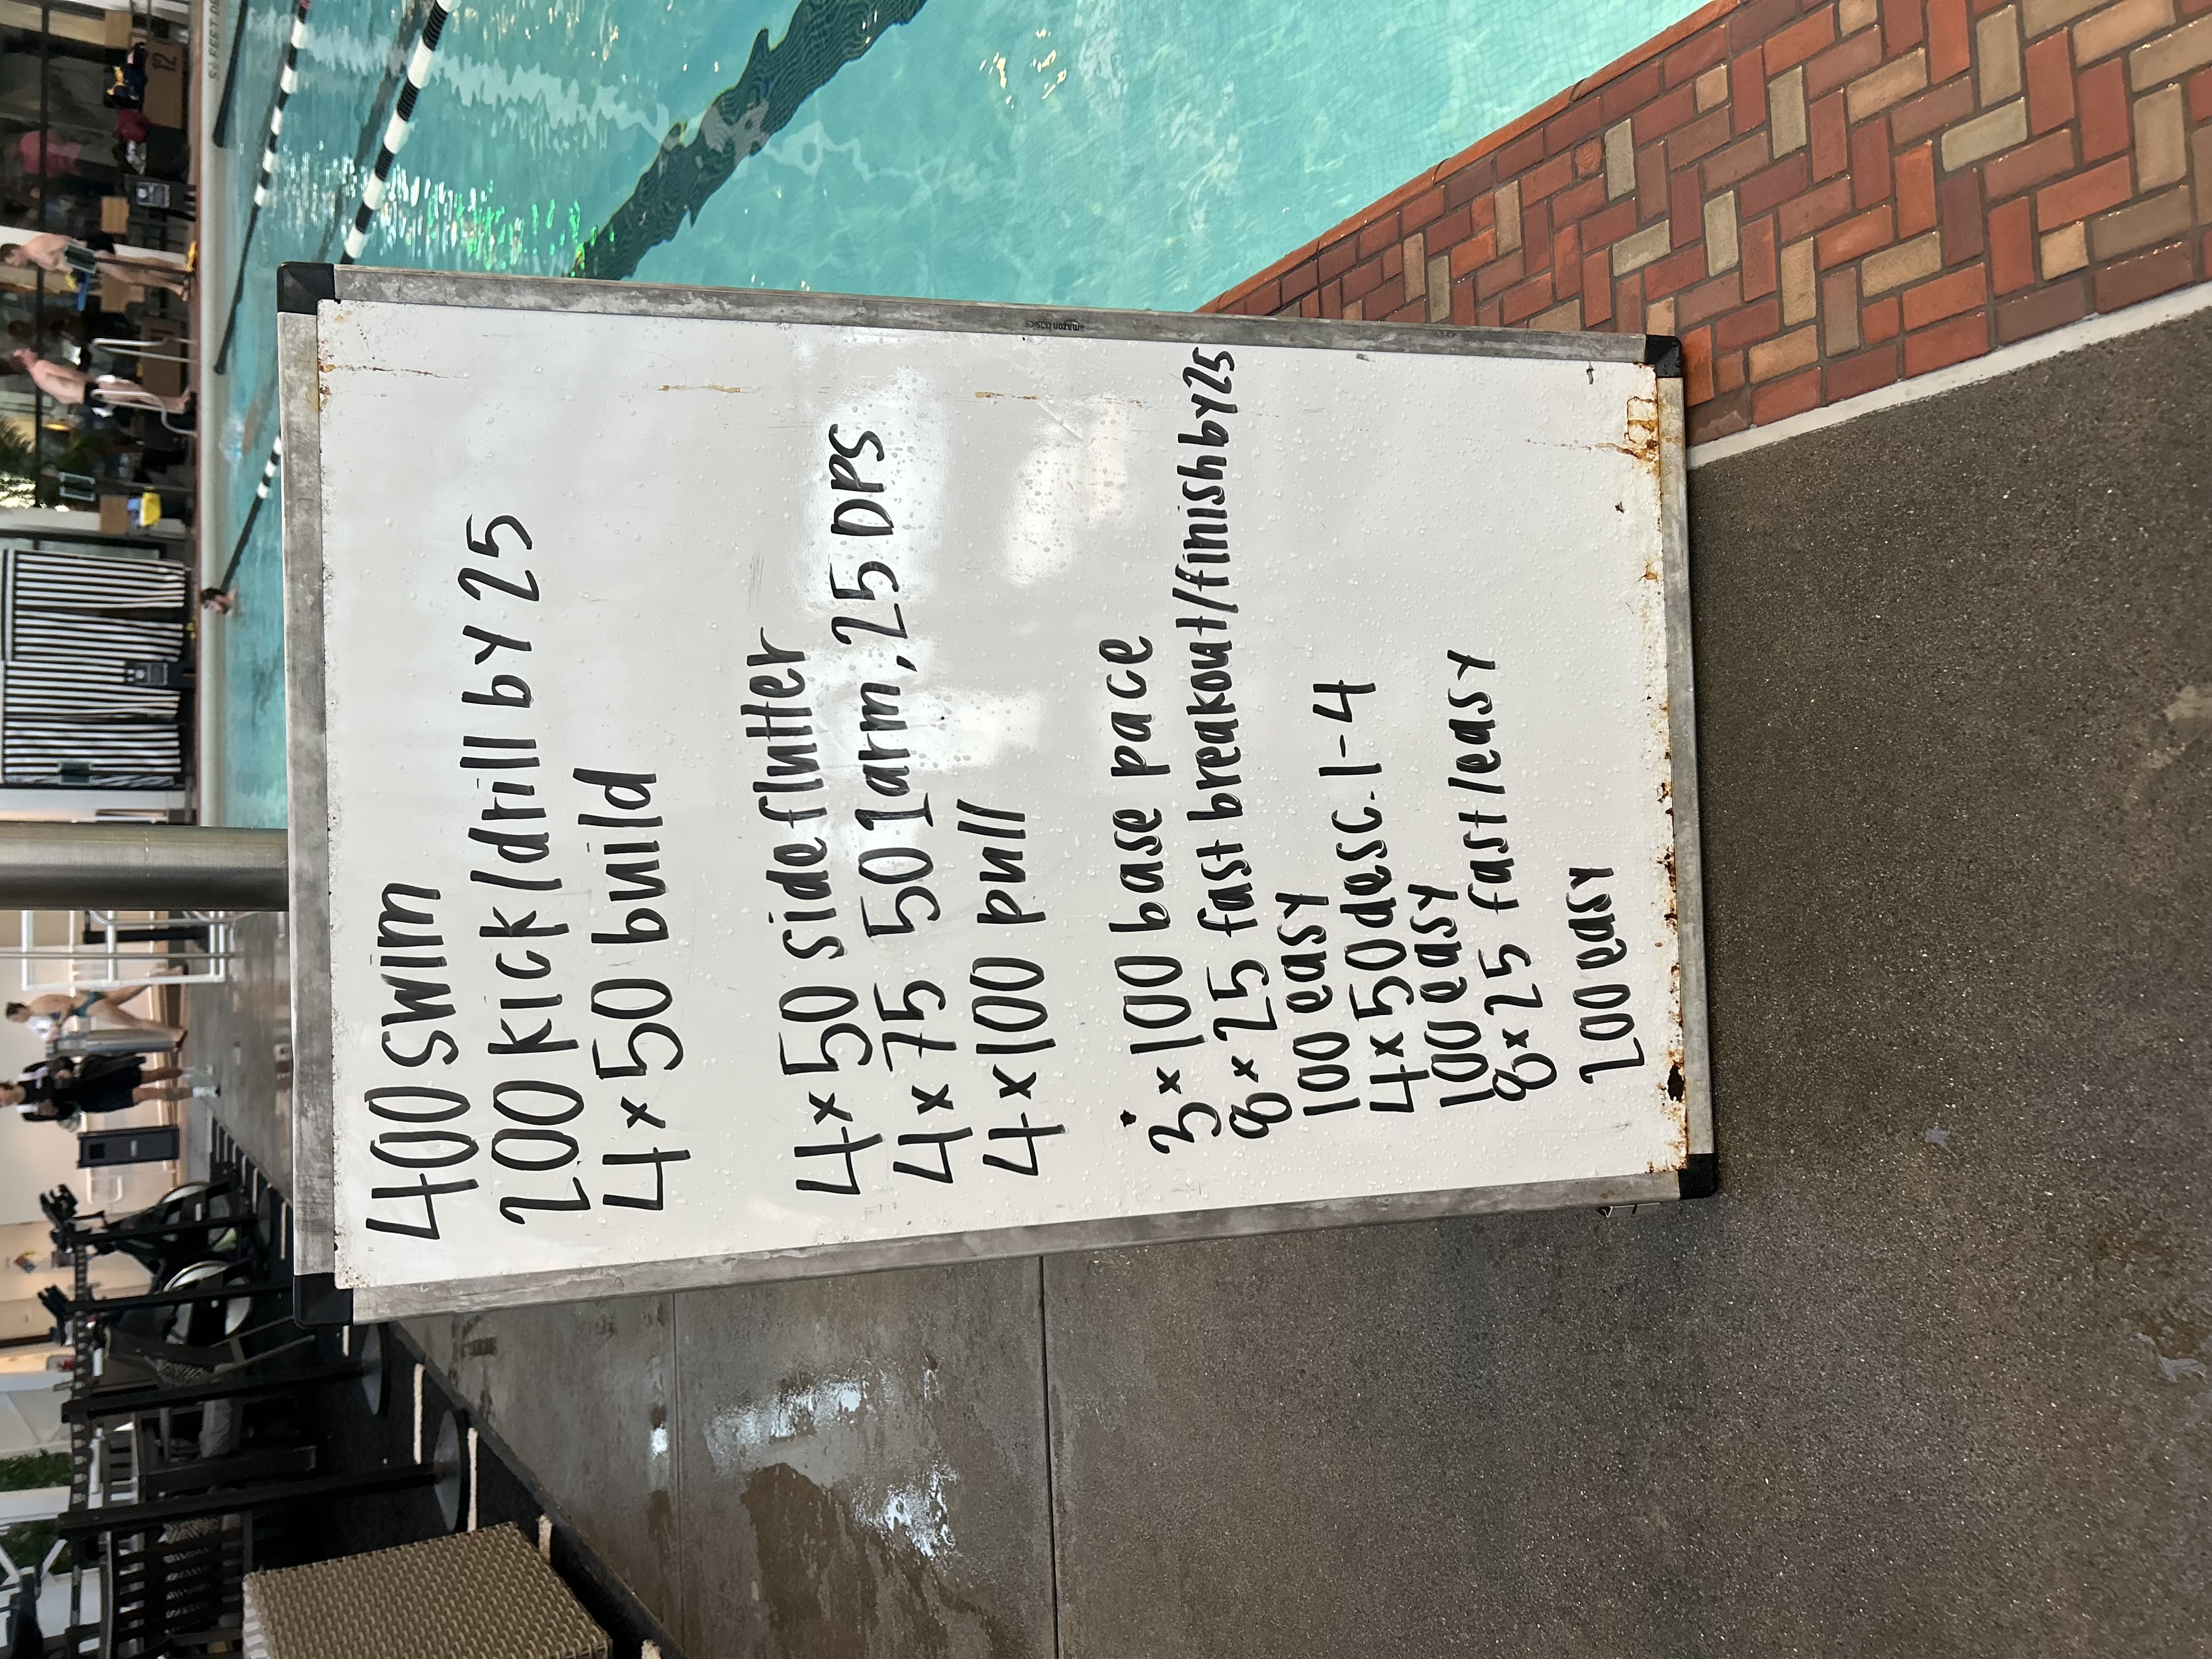 400 swim
200 kick/drill by 25
4 x 50 build
4 x 50 side flutter
4 x 75 50 1arm, 25 DPS
4 x 100 pull
3 x 100 base pace
8 x 25 fast breakout/finish by 25
100 easy
4 x 50 desc. 1-4
100 easy
8 x 25 fast/easy
200 easy
amazon basics
12